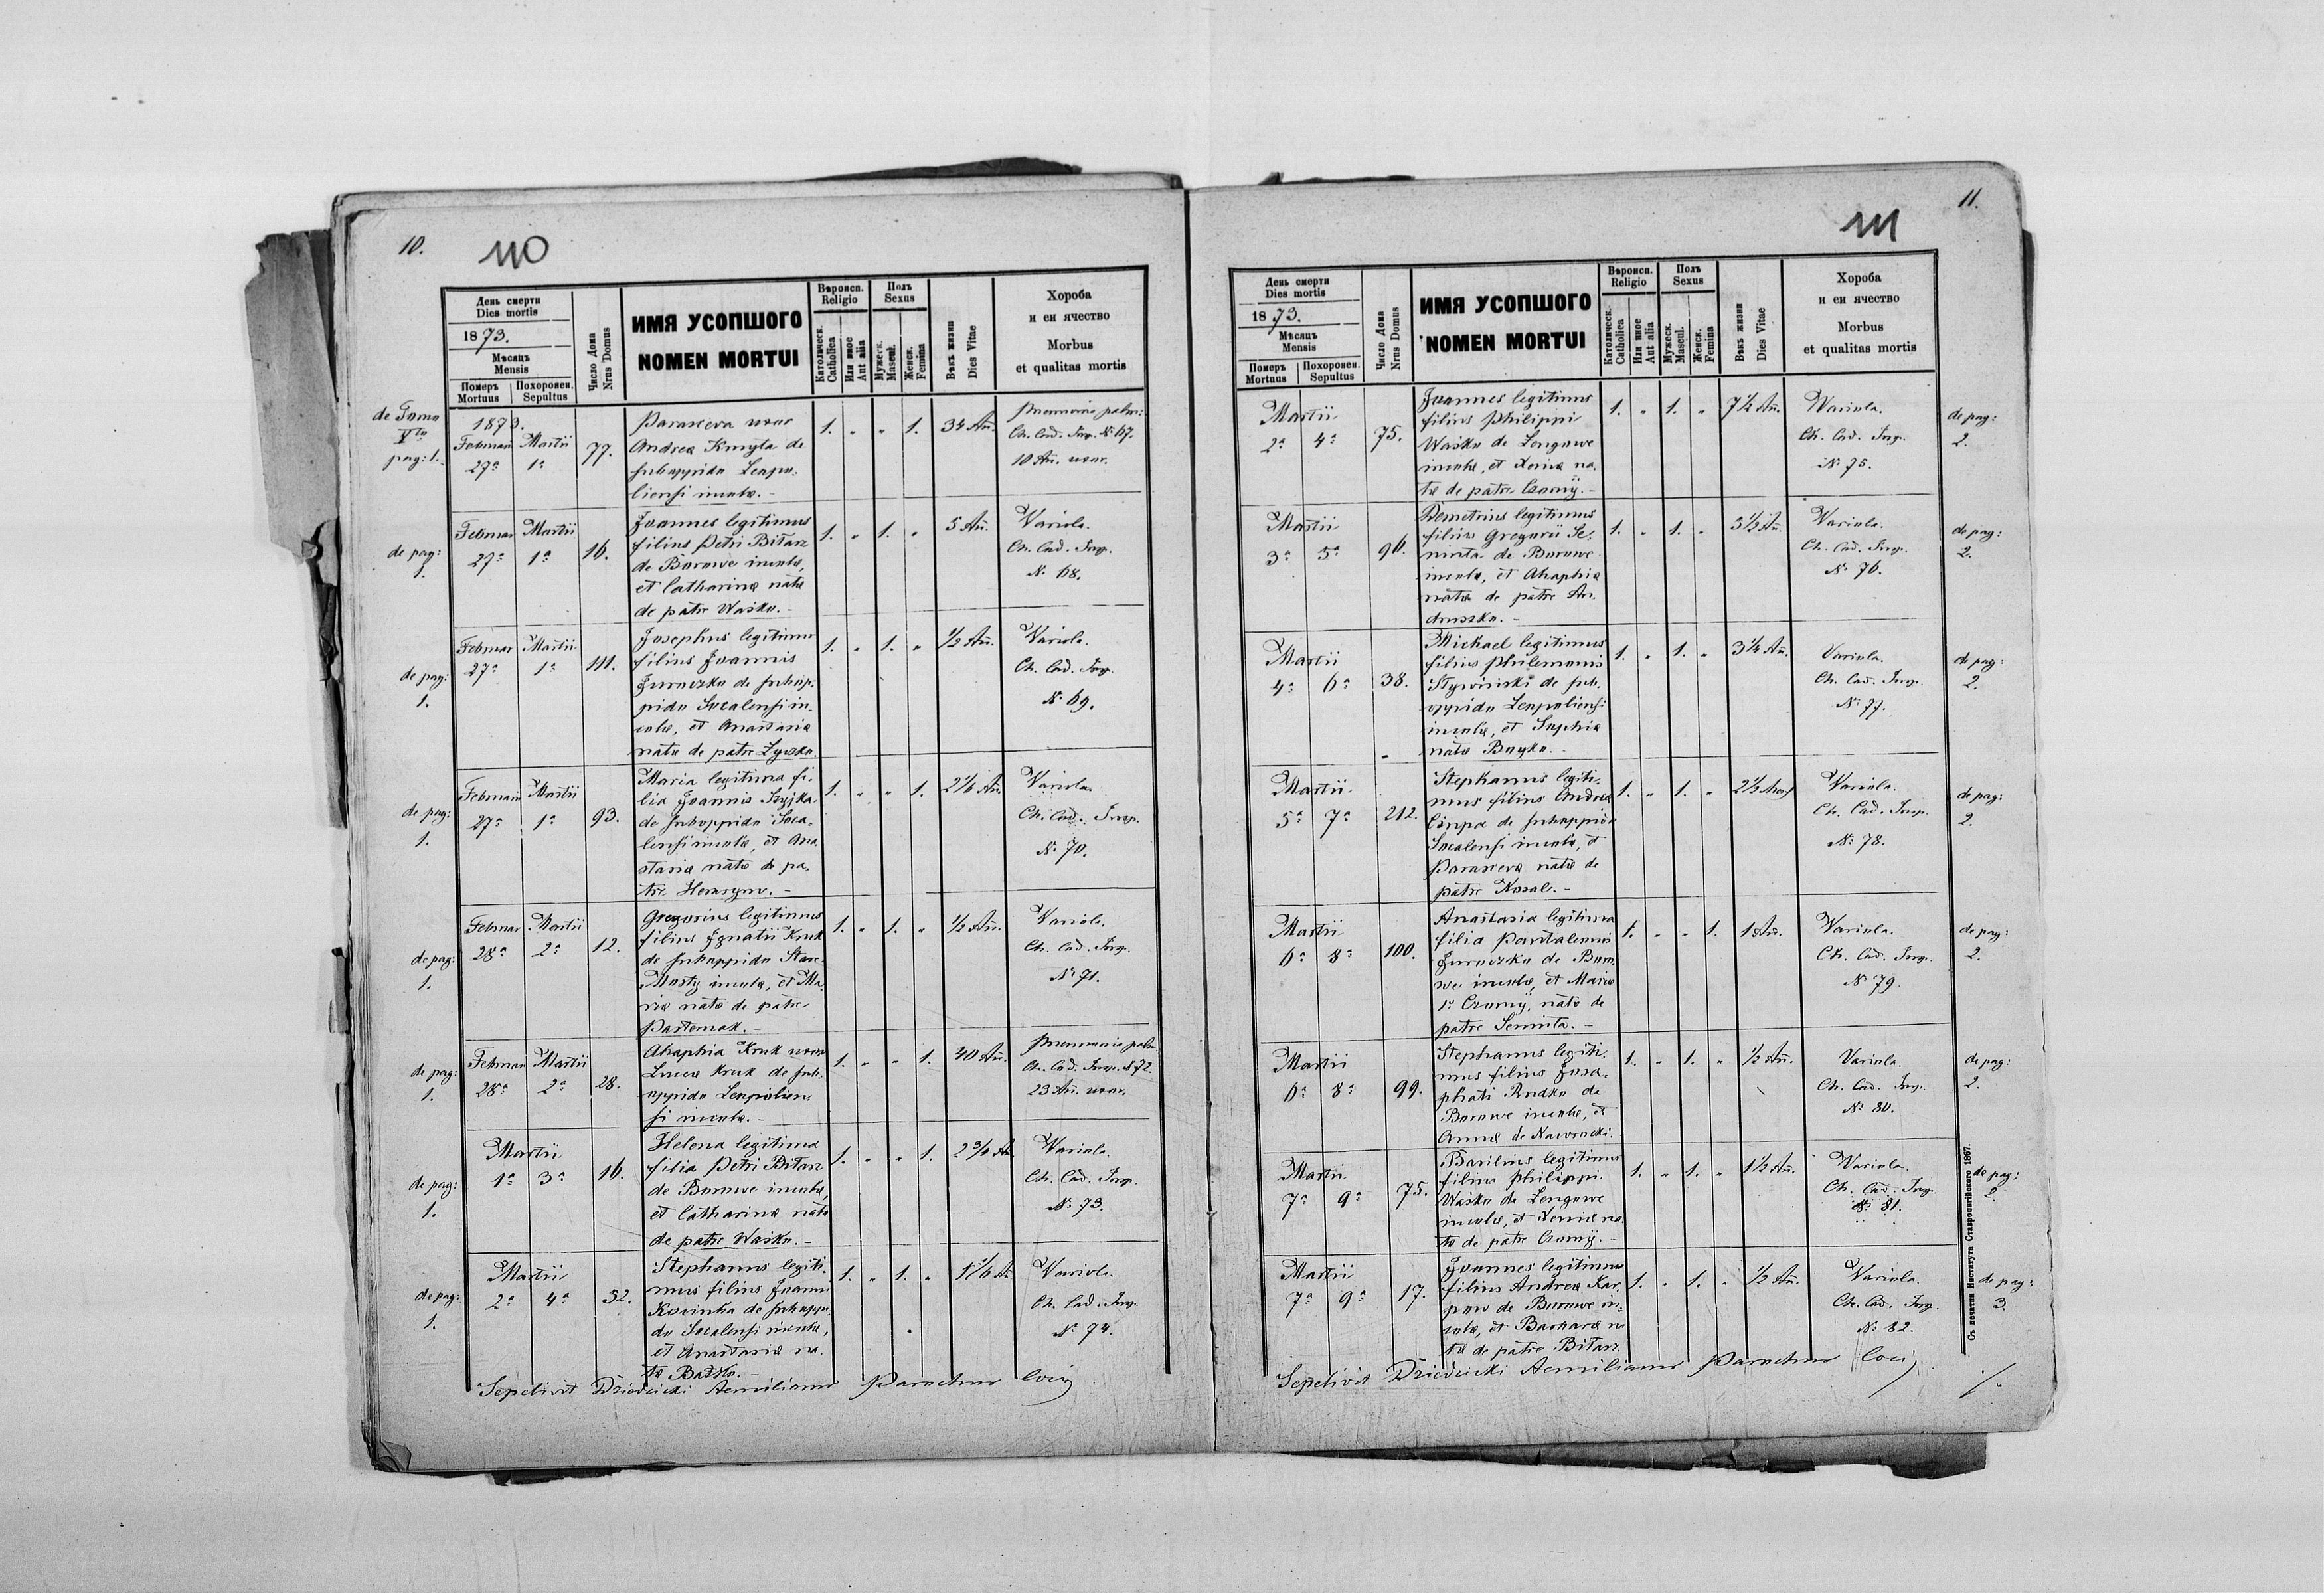 10.
110
День смерти
Dies mortis
1873.
Мѣсяць
Mensis
Померъ
Mortuus
Похоронен.
Sepultus
Число Дома
Nrus Domus
ИМЯ УСОПШОГО
NOMEN MORTUI
Вѣроисп.
Religio
Католическ.
Catholica
Или иное
Aut alia
Полъ
Sexus
Мужеск.
Mascul.
Женск.
Femina
Вѣкъ жизни
Dies Vitae
Хороба
и еи ячество
Morbus
et qualitas mortis
de Tomo
Vto
pag: 1.
1873.
Februarii Martii
27a 1a 77.
Parasceva uxor
Andreæ Kmyta de
suboppido Leapo-
liensi incolæ. -
1. „ „ 1. 34 Añ.
Pneumonia pulm:
Ch. Cad. Insp. N. 67.
10 Añ. uxor.
de pag:
1.
Februar Martii
27a 1a 16.
Joannes legitimus
filius Petri Bitarz
de Borowe incolæ,
et Catharinæ natæ
de patre Waśko. -
1. „ 1. „ 5 Añ.
Variola.
Ch. Cad. Insp.
N. 68.
de pag:
1.
Februar Martii
27a 1a 111.
Josephus legitimus
filius Joannis
Juroczko de subop-
pido Socalensi in-
colæ, et Anastasiæ
natæ de patre Łyszko.
1. „ 1. „ 1/2 Añ.
Variola.
Ch. Cad. Insp.
N. 69.
de pag:
1.
Februarii Martii
27a 1a 93.
Maria legitima fi-
lia Joannis Szyjka
de suboppido Soca-
lensi incolæ, et Ana-
stasiæ natæ de pa-
tre Harasym. -
1. „ „ 1. 2 1/6 Añ.
Variola.
Ch. Cad. Insp.
N. 70.
de pag:
1.
Februar Martii
28a 2a 12.
Gregorius legitimus
filius Ignatii Kruk
de suboppido Stare-
Mosty incolæ, et Ma-
riæ natæ de patre
Pasternak. -
1. „ 1. „ 1/2 Añ.
Variola.
Ch. Cad. Insp.
N. 71.
de pag:
1.
Februar Martii
28a 2a 28.
Ahaphia Kruk uxor
Lucæ Kruk de sub-
oppido Leapolien-
si incolæ. -
1. „ „ 1. 40 Añ.
Pneumonia pulm.
Ch. Cad. Insp. N 72.
23 Añ. uxor.
de pag:
1.
Martii
1a 3a 16.
Helena legitima
filia Petri Bitarz
de Borowe incolæ,
et Catharinæ natæ
de patre Waśko. -
1. „ „ 1. 2 3/6 Añ
Variola.
Ch. Cad. Insp.
N. 73.
de pag:
1.
Martii
2a 4a 52.
Stephanus legiti-
mus filius Joannis
de suboppi-
do Socalensi incolæ,
et Anastasiæ na-
tæ
1. „ 1. „
Variola.
Ch. Cad. Insp.
N. 74.
Sepelivit Dziedzicki Aemilianus Parochus loci
11.
111
День смерти
Dies mortis
1873.
Мѣсяць
Mensis
Померъ
Mortuus
Похоронен.
Sepultus
Число Дома
Nrus Domus
ИМЯ УСОПШОГО
NOMEN MORTUI
Вѣроисп.
Religio
Католическ.
Catholica
Или иное
Aut alia
Полъ
Sexus
Мужеск.
Mascul.
Женск.
Femina
Вѣкъ жизни
Dies Vitae
Хороба
и еи ячество
Morbus
et qualitas mortis
Martii
2a 4a 75.
Joannes legitimus
filius Philippi
Waśko de Longowe
incolæ, et Xeniæ na-
tæ de patre Czornÿ. -
1. „ 1. „ 7 1/2 Añ.
Variola.
Ch. Cad. Insp.
N. 75.
de pag:
2.
Martii
3a 5a 96.
Demetrius legitimus
filius Gregorii Se-
minta de Borowe
incolæ, et Ahaphiæ
natæ de patre An-
druszko. -
1. „ 1. „ 5 1/2 Añ.
Variola.
Ch. Cad. Insp.
N. 76.
de pag:
2.
Martii
4a 6a 38.
Michael legitimus
filius Philemonis
de sub-
oppido Leapoliensi
incolæ, et Sophiæ
natæ Boyko. -
1. „ 1. „ 3 1/4 Añ.
Variola.
Ch. Cad. Insp.
N. 77.
de pag:
2.
Martii
5a 7a 212.
Stephanus legiti-
mus filius Andreæ
Ciupa de suboppido
Socalensi incolæ, et
Parascevæ natæ de
patre Koval. -
1. „ 1. „ 2 1/2
Variola.
Ch. Cad. Insp.
N. 78.
de pag:
2.
Martii
6a 8a 100.
Anastasia legitima
filia Pantalemonis
Juroczko de Boro-
we incolæ, et Mariæ
1o Czornÿ, natæ de
patre Seminta. -
1. „ „ 1. 1 Añ.
Variola.
Ch. Cad. Insp.
N. 79.
de pag:
2.
Martii
6a 8a 99.
Stephanus legiti-
mus filius Josa-
phati Rudko de
Borowe incolæ, et
Annæ de Nawrocki.
1. „ 1. „ 1/2 Añ.
Variola.
Ch. Cad. Insp.
N. 80.
de pag:
2.
Martii
7a 9a 75.
Basilius legitimus
filius Philippi
Waśko de Longowe
incolæ, et Xeniæ na-
tæ de patre Czornÿ. -
1. „ 1. „ 1 1/2 Añ.
Variola.
Ch. Cad. Insp.
N. 81.
de pag:
2
Martii
7a 9a 17.
Joannes legitimus
filius Andreæ Kar-
pow de Borowe in-
colæ, et Barbaræ na-
tæ de patre Bitarz.
1. „ 1. „ 1/2 Añ.
Variola.
Ch. Cad. Insp.
N. 82.
de pag:
3.
Sepelivit Dziedzicki Aemilianus Parochus loci
Съ печатни Института Ставропигійского 1867.